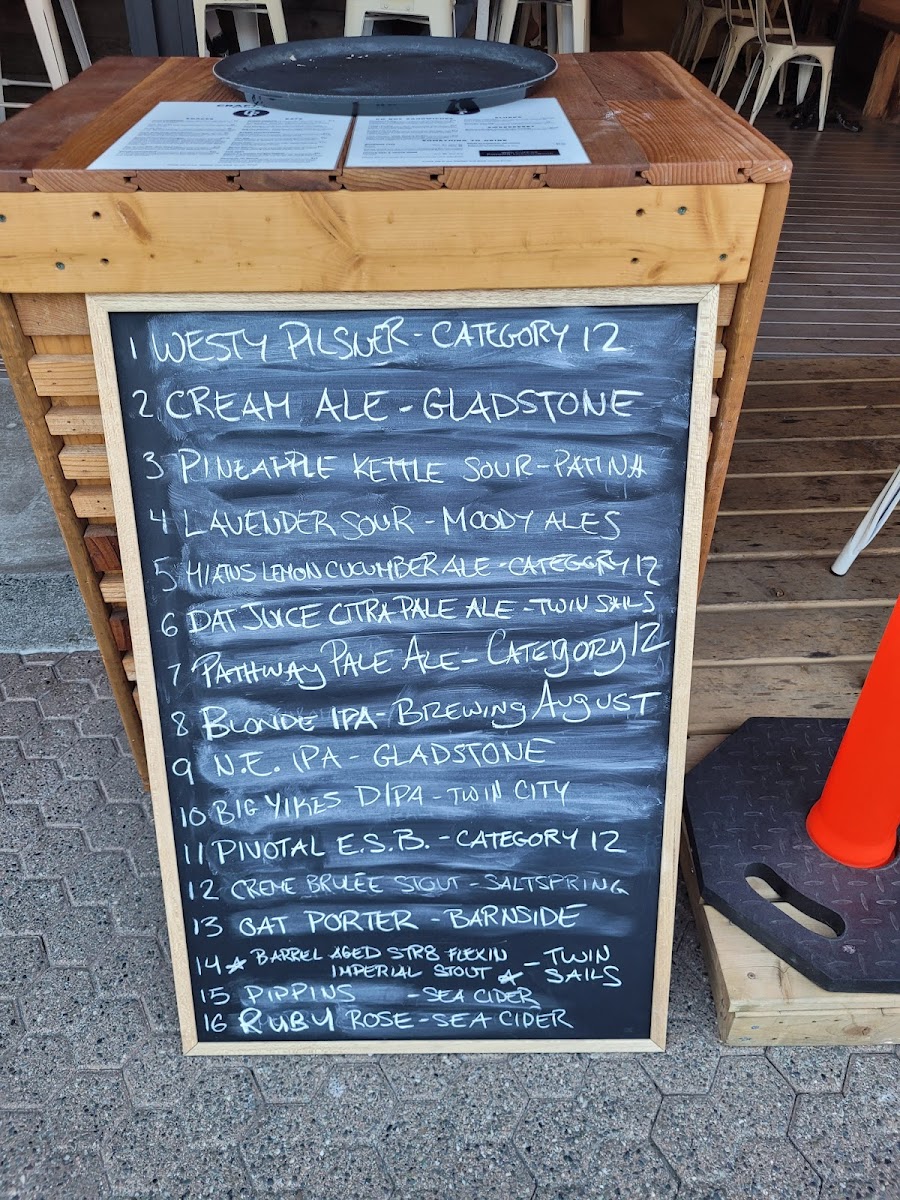 1 WESTY PILSNER - CATEGORY 12
2 CREAM ALE - GLADSTONE
3 PINEAPPLE KETTLE SOUR - PATINA
4 LAVENDER SOUR - MOODY ALES
5 HIATUS LEMON CUCUMBER ALE - CATEGORY 12
6 DAT JUICE CITRA PALE ALE - TWIN SAILS
7 PATHWAY PALE ALE - CATEGORY 12
8 BLONDE IPA - BREWING AUGUST
9 N.E. IPA - GLADSTONE
10 BIG YIKES DIPA - TWIN CITY
11 PIVOTAL E.S.B. - CATEGORY 12
12 CREME BRULÉE STOUT - SALTSPRING
13 OAT PORTER - BARNSIDE
14 ★ BARREL AGED STR8 FLEXIN - TWIN
IMPERIAL STOUT ★ SAILS
15 PIPPINS - SEA CIDER
16 RUBY ROSE - SEA CIDER